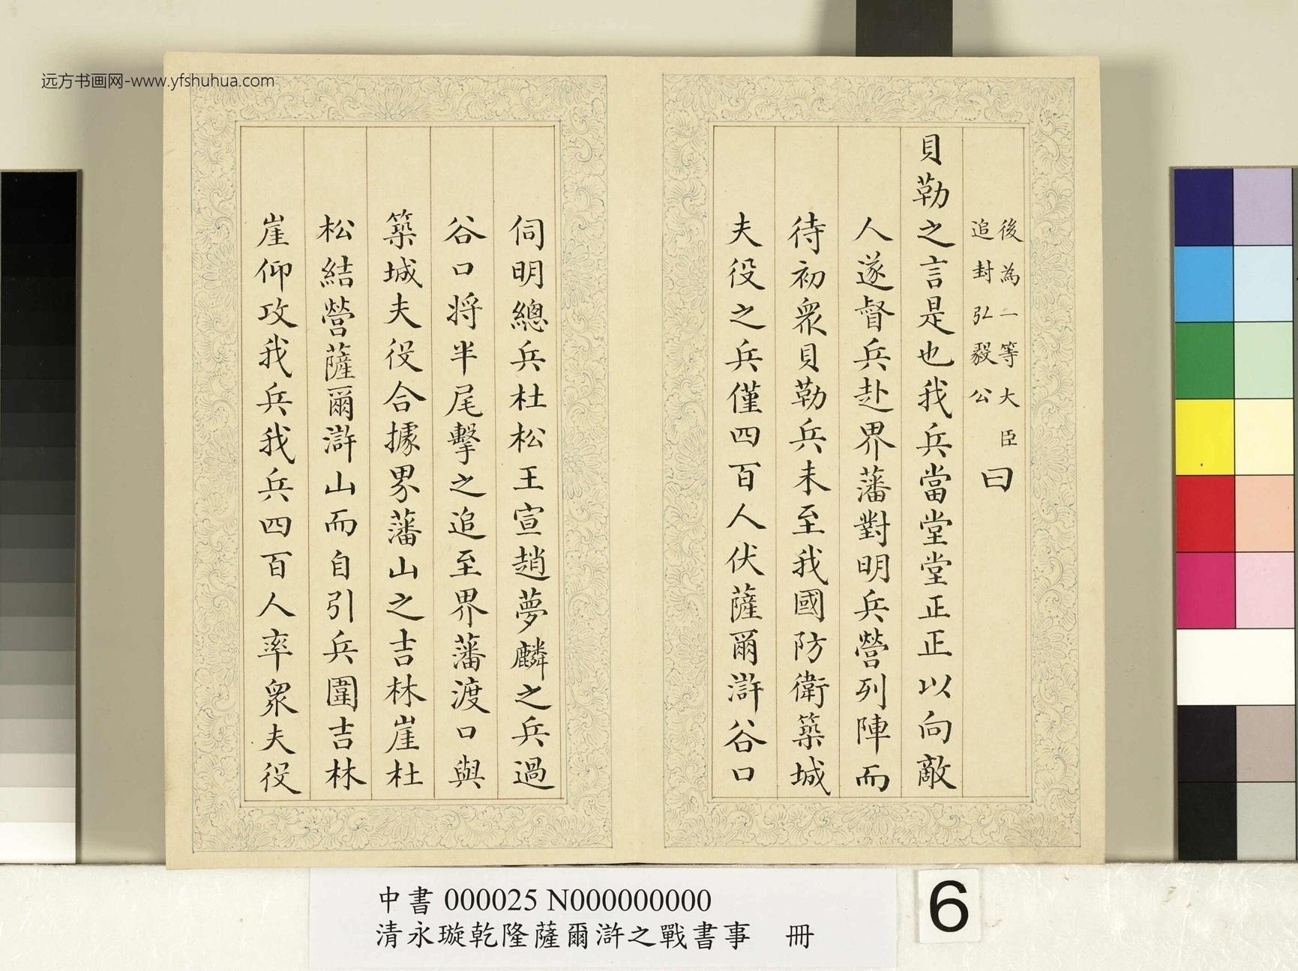 远方书画网-www.yfshuhua.com
後為一等大臣
追封弘毅公
曰
貝勒之言是也我兵當堂堂正正以向敵
人遂督兵赴界藩對明兵營列陣而
待初衆貝勒兵未至我國防衛築城
夫役之兵僅四百人伏薩爾滸谷口
伺明總兵杜松王宣趙夢麟之兵過
谷口將半尾擊之追至界藩渡口與
築城夫役合據界藩山之吉林崖杜
松結營薩爾滸山而自引兵圍吉林
崖仰攻我兵我兵四百人率衆夫役
中書 000025 N000000000
清永璇乾隆薩爾滸之戰書事 冊
6